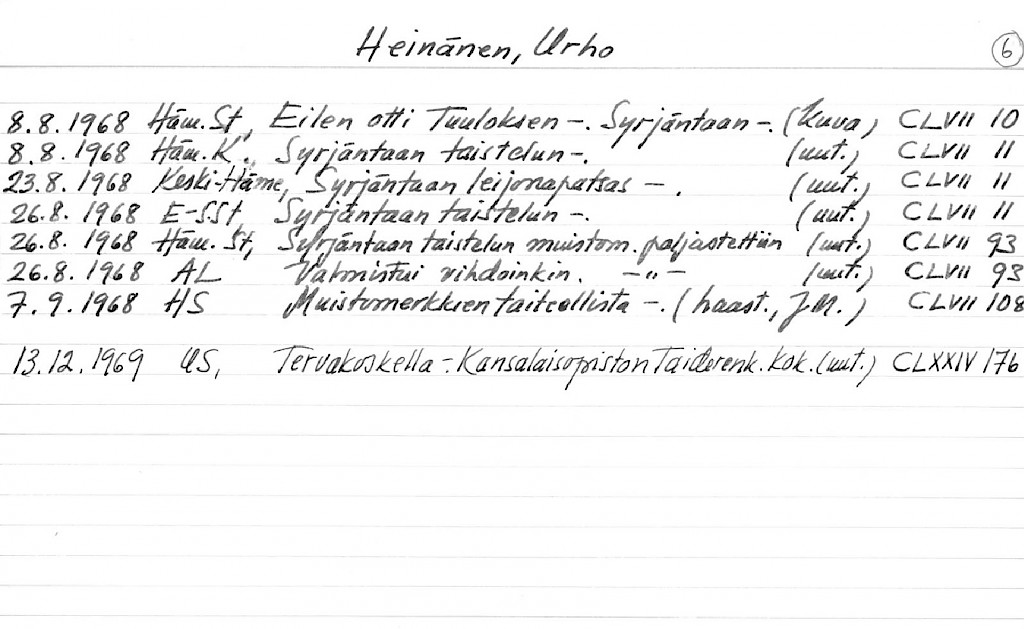 Heinänen, Urho
6
8.8.1968 Häm.St, Eilen otti Tuuloksen -. Syrjäntaan -. (kuva) CLVII 10
8.8.1968 Häm.K., Syrjäntaan taistelun -. (uut.) CLVII 11
23.8.1968 Keski-Häme, Syrjäntaan leijonapatsas -. (uut.) CLVII 11
26.8.1968 E-SSt, Syrjäntaan taistelun -. (uut.) CLVII 11
26.8.1968 Häm.St, Syrjäntaan taistelun muistom. paljastettiin (uut.) CLVII 93
26.8.1968 AL Valmistui vihdoinkin. -"- (uut.) CLVII 93
7.9.1968 HS Muistomerkkien taiteellista -. (haast., J.M.) CLVII 108
13.12.1969 US, Tervakoskella - Kansalaisopiston Taiderenk. kok. (uut.) CLXXIV 176